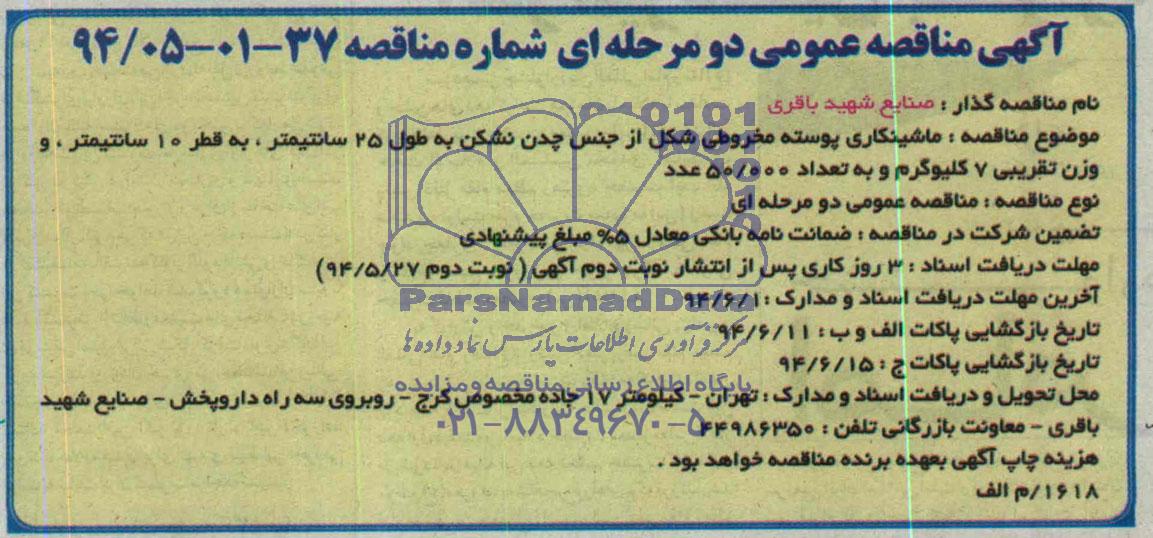 آگهی مناقصه عمومی دو مرحله ای شماره مناقصه ۳۷-۰۱-۹۴/۰۵
نام مناقصه گذار : صنایع شهید باقری
موضوع مناقصه : ماشینکاری پوسته مخروطی شکل از جنس چدن نشکن به طول ۲۵ سانتیمتر ، به قطر ۱۰ سانتیمتر ، و
وزن تقریبی ۷ کلیوگرم و به تعداد ۵۰/۰۰۰ عدد
نوع مناقصه : مناقصه عمومی دو مرحله ای
تضمین شرکت در مناقصه : ضمانت نامه بانکی معادل ۵% مبلغ پیشنهادی
مهلت دریافت اسناد : ۳ روز کاری پس از انتشار نوبت دوم آگهی ( نوبت دوم ۹۴/۵/۲۷)
آخرین مهلت دریافت اسناد و مدارک : ۹۴/۶/۱
تاریخ بازگشایی پاکات الف و ب : ۹۴/۶/۱۱
تاریخ بازگشایی پاکات ج : ۹۴/۶/۱۵
محل تحویل و دریافت اسناد و مدارک : تهران - کیلومتر ۱۷ جاده مخصوص کرج - روبروی سه راه داروپخش - صنایع شهید
باقری - معاونت بازرگانی تلفن : ۴۴۹۸۶۳۵۰
هزینه چاپ آگهی بعهده برنده مناقصه خواهد بود .
۱۶۱۸/م الف
ParsNamadData
مرکز فرآوری اطلاعات پارس نماد داده ها
پایگاه اطلاع رسانی مناقصه و مزایده
۰۲۱-۸۸۳۴۹۶۷۰-۵